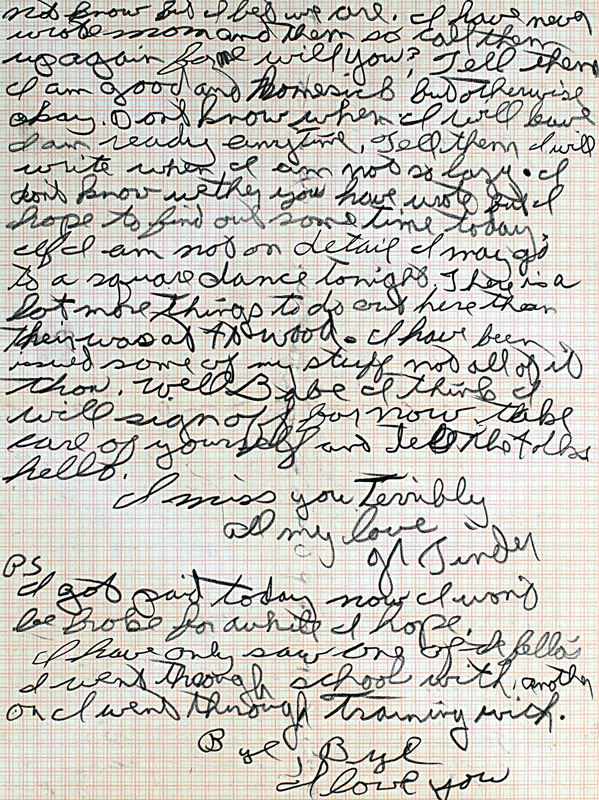 not know but I bet we are. I have never
wrote mom and them so call them
up again for me will you? Tell them
I am good and homesick but otherwise
okay. Dont know when I will leave
I am ready anytime. Tell them I will
write when I am not so lazy. I
dont know wether you have wrote but I
hope to find out some time today.
If I am not on detail I may go
to a square dance tonight. There is a
lot more things to do out here than
their was at Ft wood. I have been
issued some of my stuff not all of it
thow. Well Babe I think I
will sign off for now. take
care of yourself and Tell the folks
hello.
I miss you Terribly
all my love
Tinder
PS
I got paid today now I wont
be broke for awhile I hope.
I have only saw one of fellas
I went through school with, another
on I went through Training with.
Bye, Bye
I love you